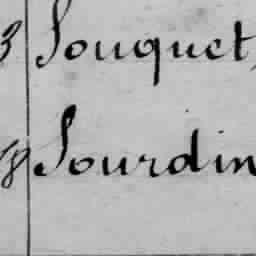 3 Souquet,
8 Sourdin